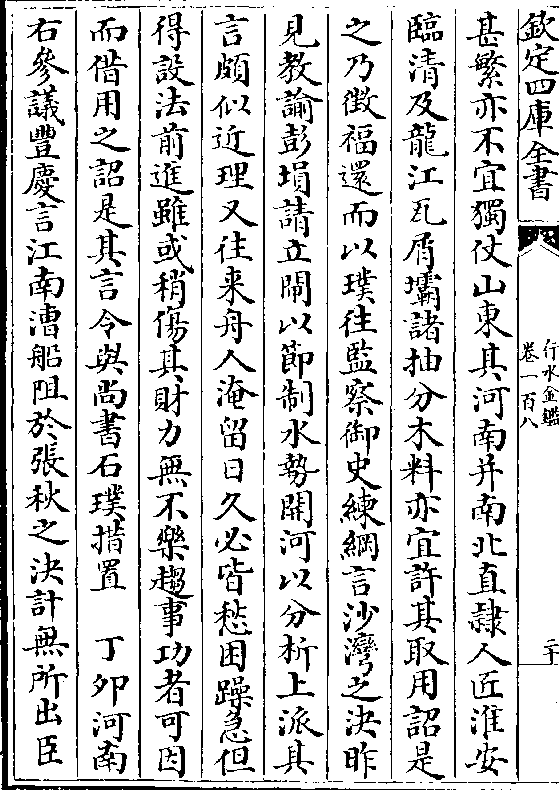 欽定四庫全書
行水金鑑
卷一百八
二十
甚繁亦不宜獨仗山東其河南并南北直隷人匠淮安
臨清及龍江瓦屑壩諸抽分木料亦宜許其取用詔是
之乃徴福還而以璞往監察御史練綱言沙灣之決昨
見教諭彭塤請立閘以節制水勢開河以分析上派其
言頗似近理又往来舟人淹留日久必皆愁困躁急但
得設法前進雖或稍傷其財力無不樂趨事功者可因
而借用之詔是其言令與尚書石璞措置　丁夘河南
右參議豐慶言江南漕船阻於張秋之決計無所出臣